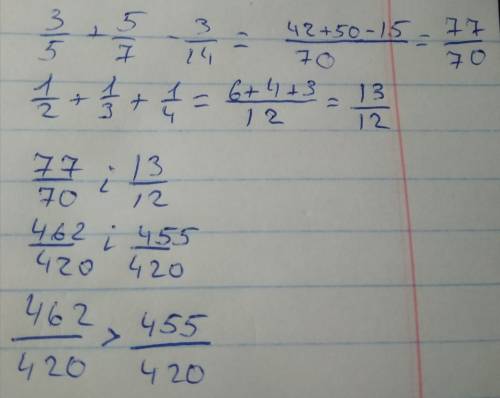 3/5 + 5/7 - 3/14 = (42+50-15)/70 = 77/70
1/2 + 1/3 + 1/4 = (6+4+3)/12 = 13/12
77/70 i 13/12
462/420 i 455/420
462/420 > 455/420